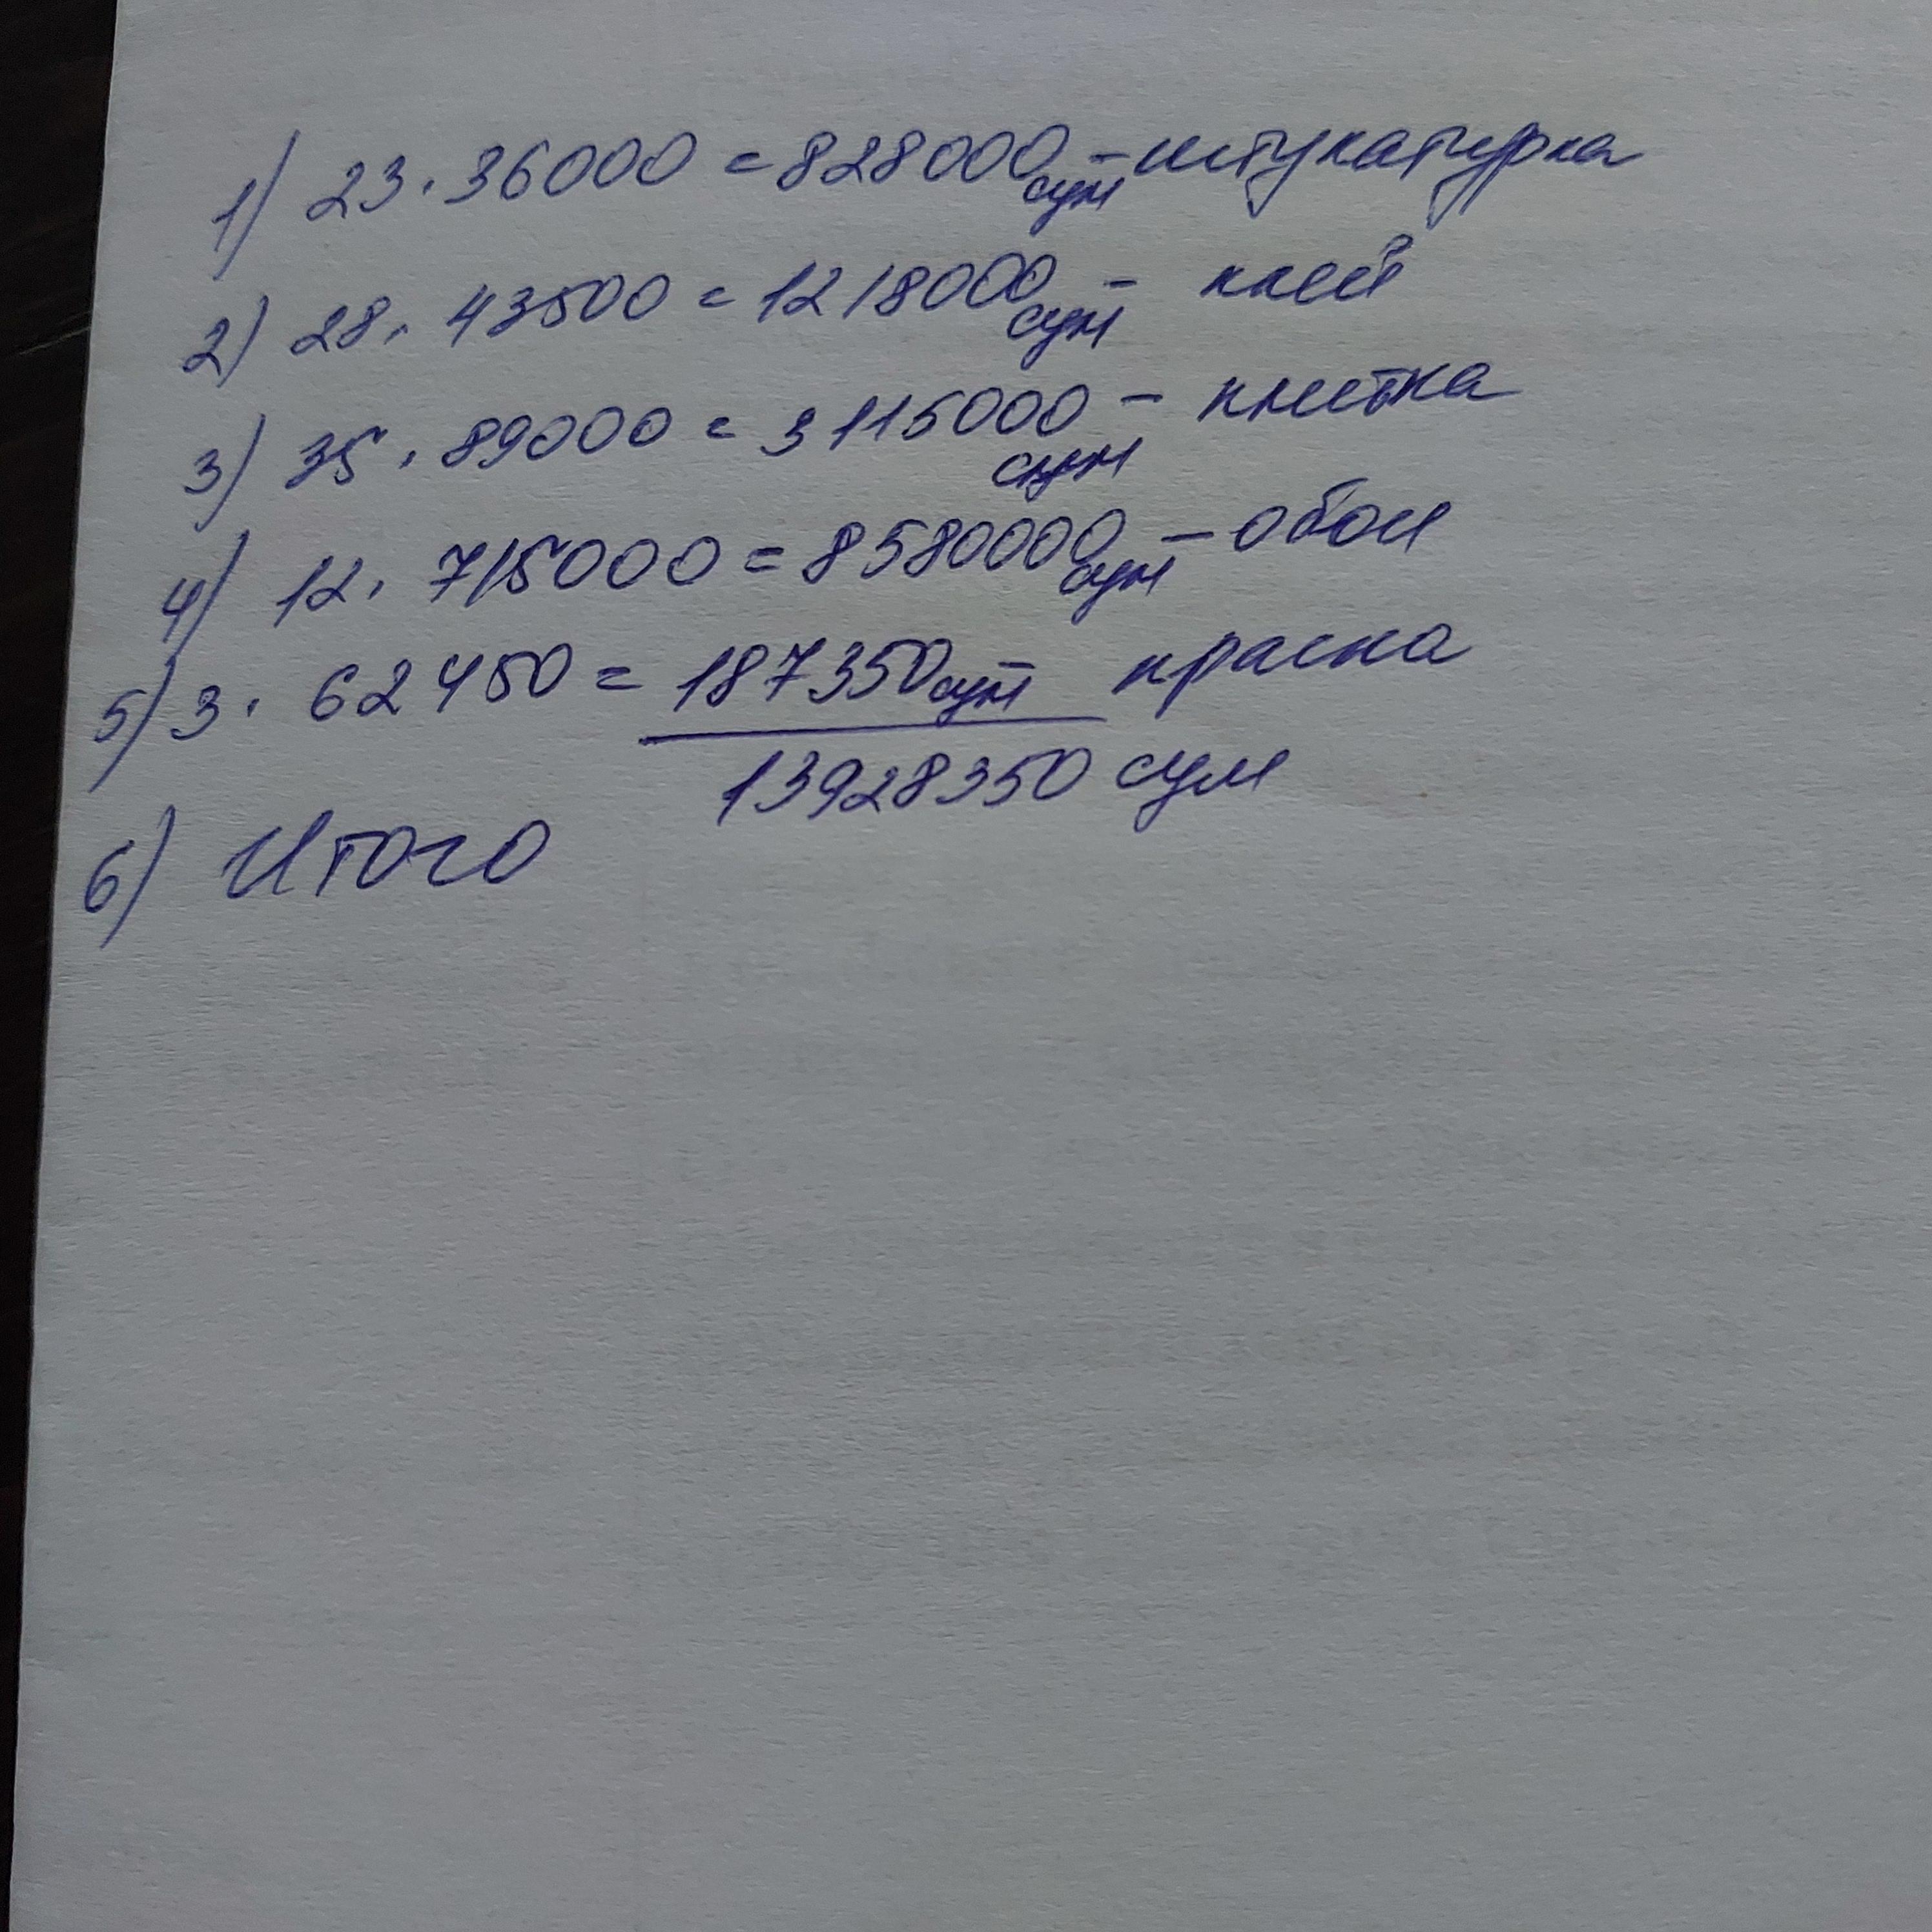 1) 23 . 36000 = 828000 сум - штукатурка
2) 28 . 43500 = 1218000 сум - клей
3) 35 . 89000 = 3115000 сум - плитка
4) 12 . 715000 = 8580000 сум - обои
5) 3 . 62450 = 187350 сум краска
13928350 сум
6) Итого